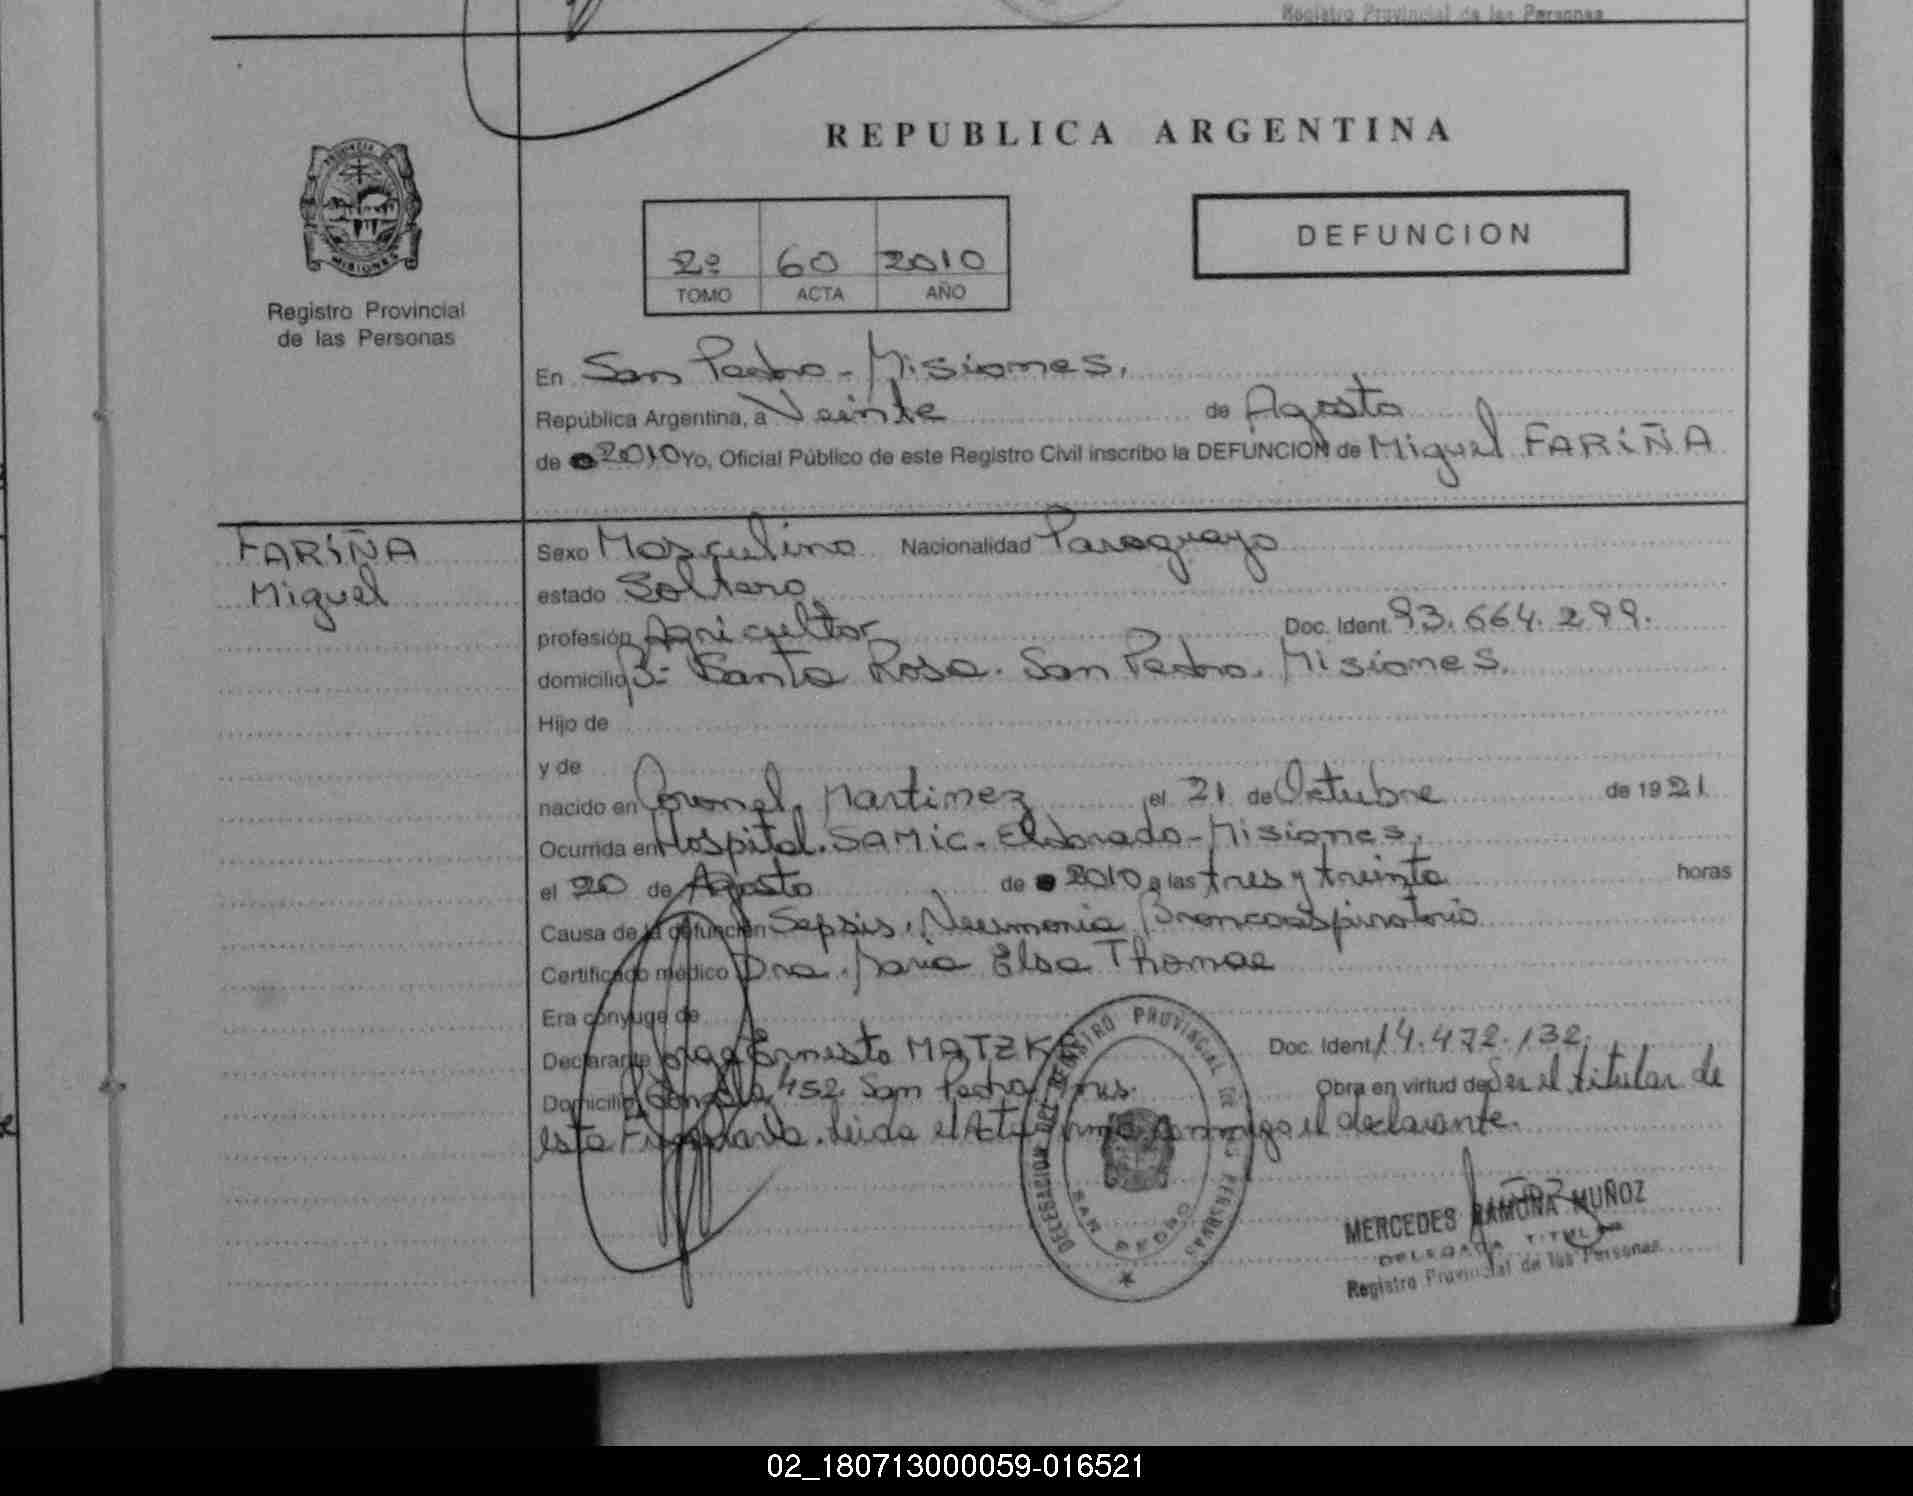 Registro Provincial de las Personas
REPUBLICA ARGENTINA
PROVINCIA DE
MISIONES
Registro Provincial
de las Personas
2º 60 2010
TOMO ACTA AÑO
DEFUNCION
En San Pedro - Misiones.
República Argentina, a Veinte de Agosto
de 2010 Yo, Oficial Público de este Registro Civil inscribo la DEFUNCION de Miguel FARIÑA
FARIÑA
Miguel
Sexo Masculino Nacionalidad Paraguayo
estado Soltero
profesión Agricultor Doc. Ident. 93.664.299.
domicilio Bº Santa Rosa. San Pedro. Misiones.
Hijo de
y de
nacido en Coronel Martinez el 21 de Octubre de 1921
Ocurrida en Hospital. SAMIC. Eldorado - Misiones.
el 20 de Agosto de 2010 a las tres y treinta horas
Causa de la defunción Sepsis, Neumonia Broncoaspiratoria
Certificado médico Dra. Maria Elsa Thomae
Era cónyuge de
Declarante Ernesto MATZK Doc. Ident. 14.472.132.
Domicilio 452. San Pedro Mnes. Obra en virtud de Ser el titular de
esta Funeraria. Leida el Acta firma conmigo el declarante.
DELEGACION DEL REGISTRO PROVINCIAL DE LAS PERSONAS
SAN PEDRO
MERCEDES RAMONA MUÑOZ
DELEGADA TITULAR
Registro Provincial de las Personas
02_180713000059-016521